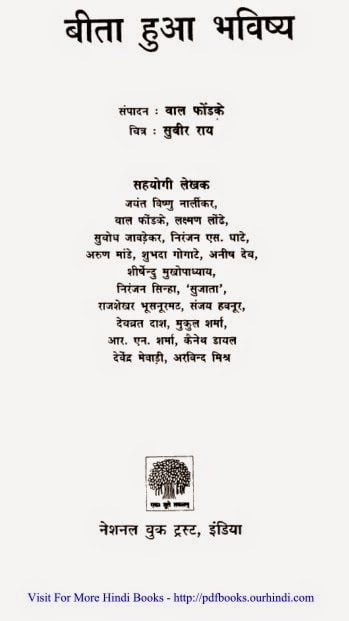 बीता हुआ भविष्य
संपादन : बाल फोंडके
चित्र : सुबीर राय
सहयोगी लेखक
जयंत विष्णु नार्लीकर,
बाल फोंडके, लक्ष्मण लोंढे,
सुबोध जावड़ेकर, निरंजन एस. घाटे,
अरुण मांडे, शुभदा गोगाटे, अनीष देव,
शीर्षेन्दु मुखोपाध्याय,
निरंजन सिन्हा, 'सुजाता',
राजशेखर भूसनूरमठ, संजय हवनूर,
देवव्रत दाश, मुकुल शर्मा,
आर. एन. शर्मा, कैनेथ डायल
देवेंद्र मेवाड़ी, अरविन्द मिश्र
नेशनल बुक ट्रस्ट, इंडिया
Visit For More Hindi Books - http://pdfbooks.ourhindi.com